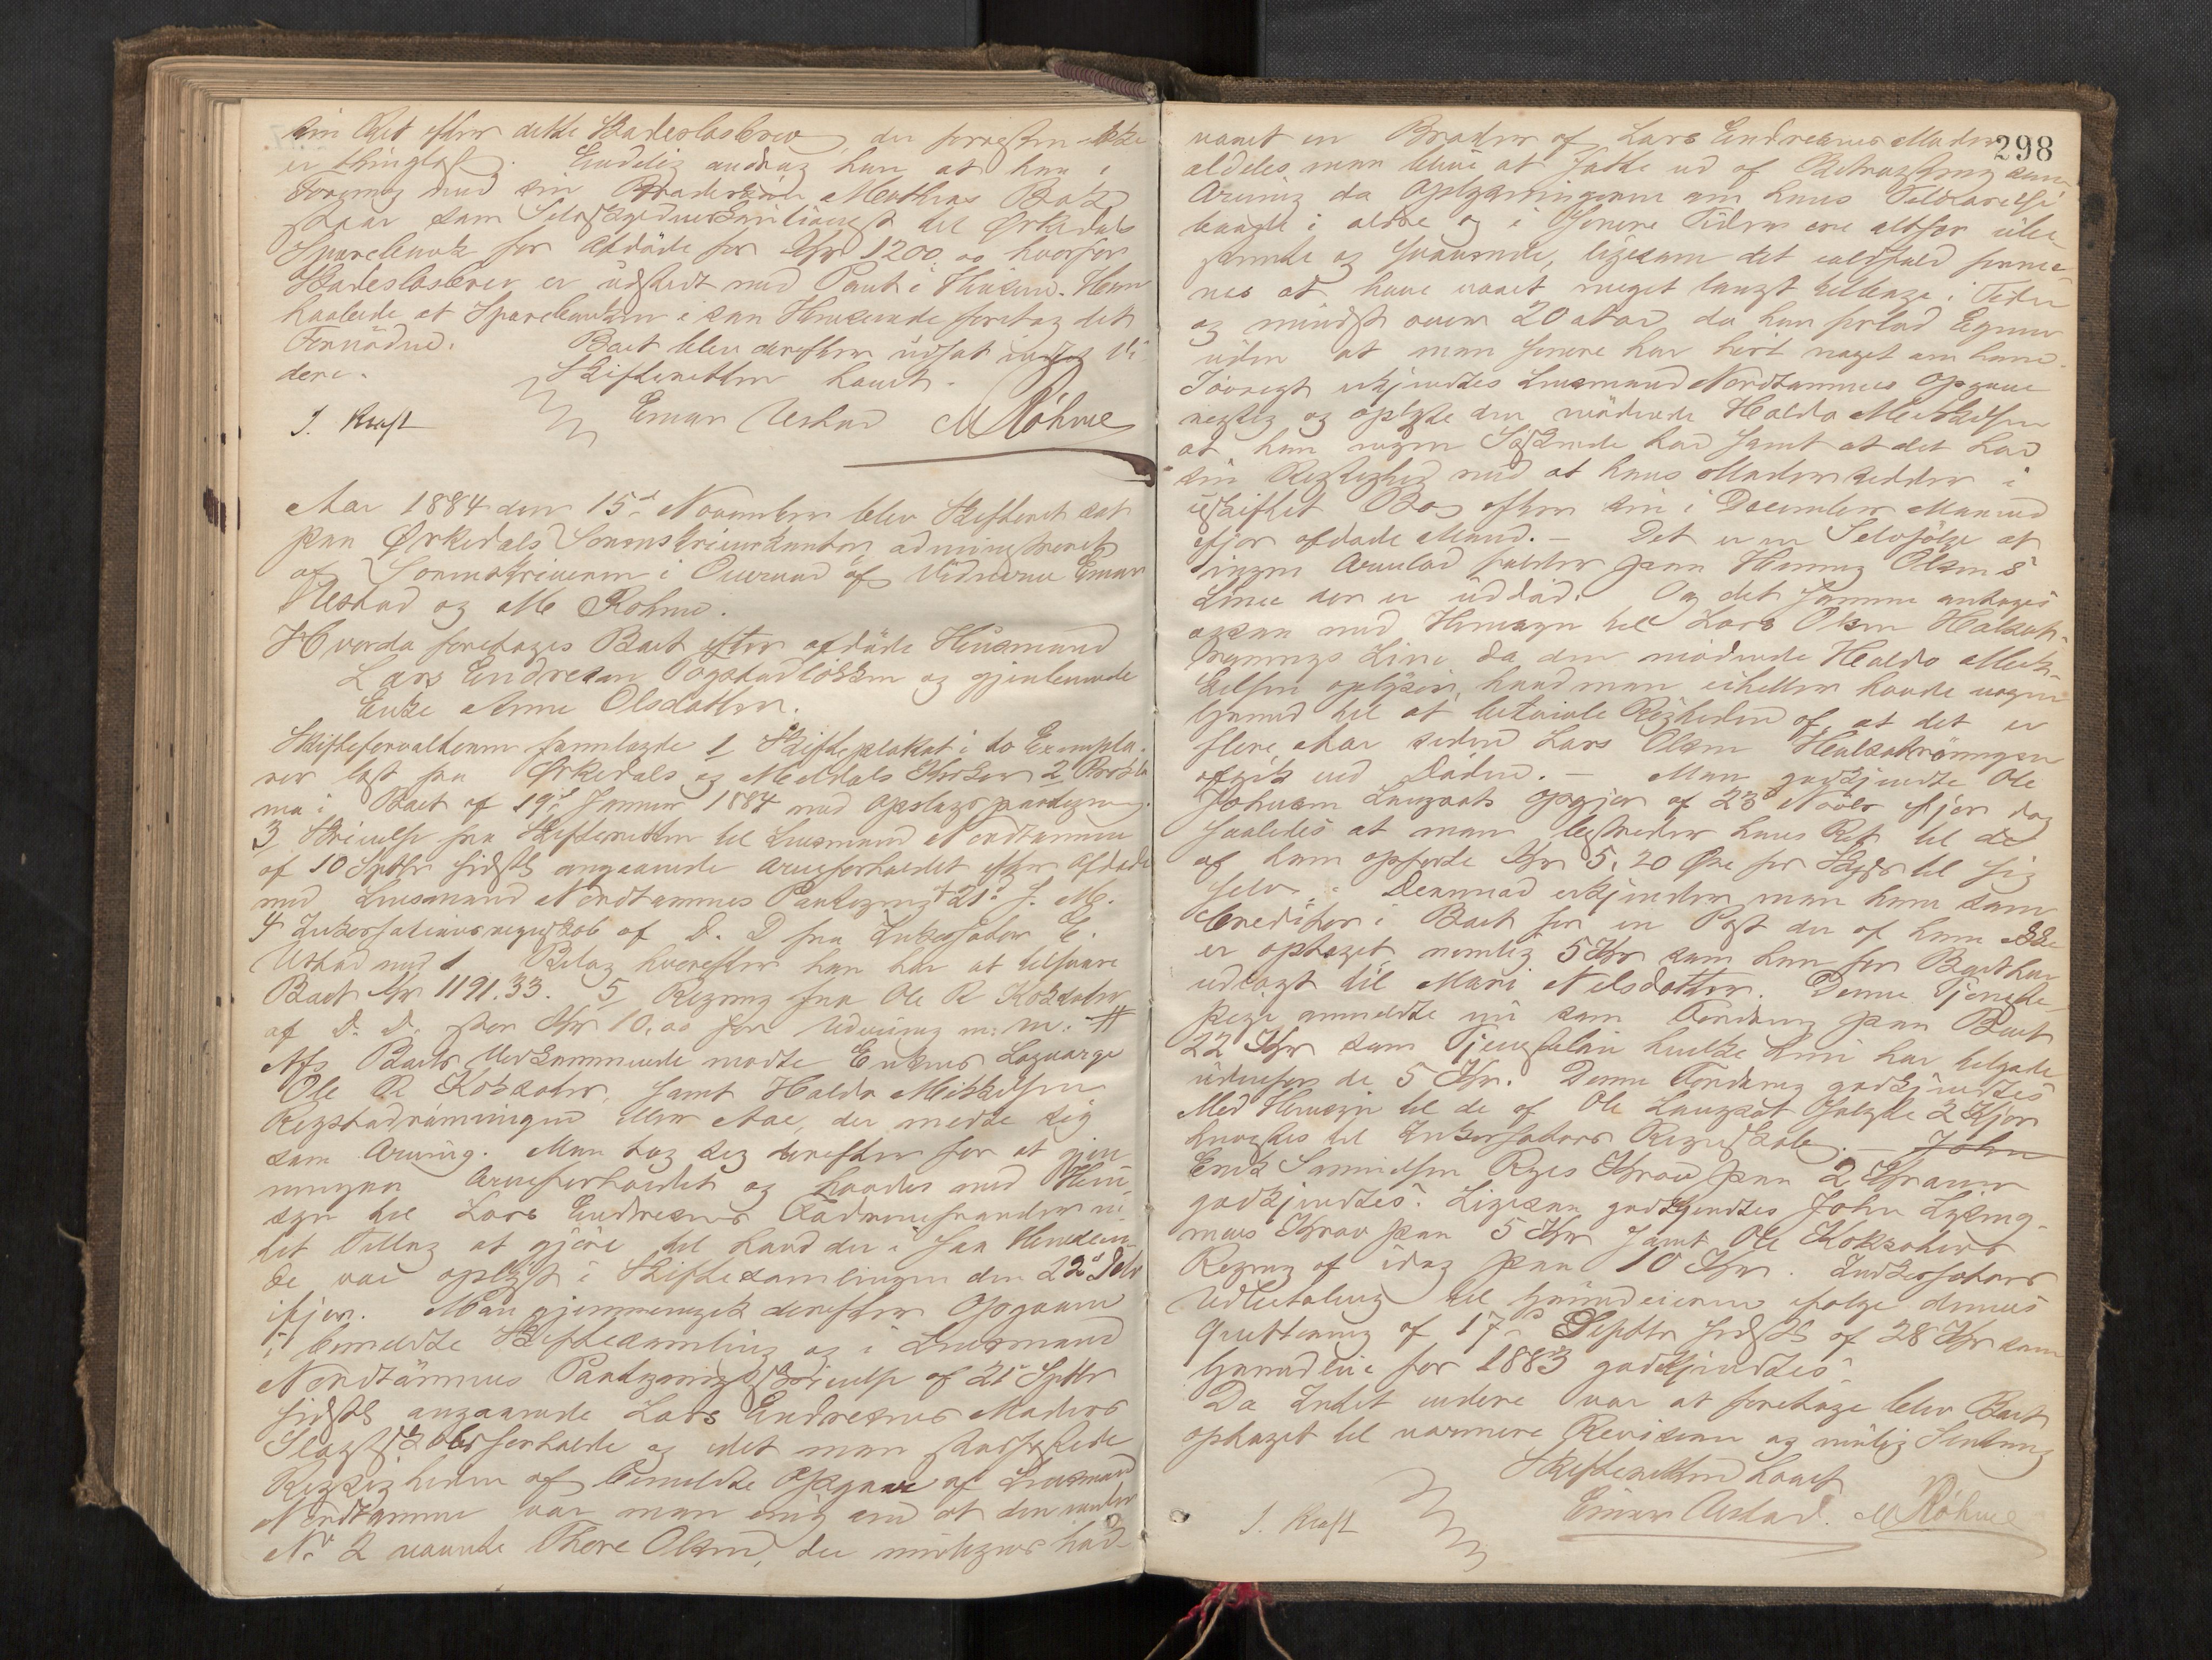 sin Ret efter dette Skadesløsbrev, der forresten ikke
er thinglæst. Endelig androg han at han i
Forening med sin Broder Mathias Bak
staar som Selvskyldnerkautionist til Ørkedals
Sparebank for Afdøde for Kr 1200.00 hvorfor
Skadesløsbrev er udstedt med Pant i Husene. Han
holdt at Sparebanken i saa Henseende foretog det
Fornødne. Boet blev derefter udsat indtil Vi
dere. Skifteretten hævet.
J. Kraft Einar Ustad M Röhme
Aar 1884 den 15d November blev Skifteret sat
paa Ørkedals Sorenskriverkontor administreret
af Sorenskriveren i Overvær af Vidnerne Einar
Ustad og M Röhme.
Hvorda foretoges Boet efter afdøde Husmand
Lars Endresen Togstadløkken og gjenlevende
Enke Anne Olsdatter.
Skifteforvalteren fremlagde 1 Skifteplakat i to Exempla-
rer læst fra Ørkedals og Meldals Kirker 2 Prokla
ma i Boet af 19d Januar 1884 med Opslagspaategning.
3 Skrivelse fra Skifteretten til Lensmand Nordtømme
af 10 Septbr sidstl angaaende Arveforholdet efter Afdøde
med Lensmand Nordtømmes Paategning 21d s. M.
4 Inkassationsregnskab af D. D fra Inkassator E.
Ustad med 1 Bilag hvorefter han har at tilsvare
Boet Kr 1191.33. 5 Regning fra Ole R Koksaher
af D. D. stor Kr 10.00 for Udvisning m: m. #
Af Boets Vedkommende mødte Enkens Laugværge
Ole R Koksaher, samt Haldo Mikkelsen
Regstadrønningen eller Aae, der meldte sig
som Arving. Man tog sig derefter for at gjen
nemgaa Arveforholdet og havdes med Hen-
syn til Lars Endresens Fædrenefrænder in-
tet Tillæg at gjøre til hvad der i saa Henseen
de var oplyst i Skiftesamlingen den 22d Febr
ifjor. Man gjennemgik derefter Opgaven
i bemeldte Skiftesamling og i Lensmand
Nordtømmes Paategningsskrivelse af 21d Septbr
sidstl angaaende Lars Endresens Moders
Slægtskabsforholde og idet man stadfæstede
Rigtigheden af bemeldte Opgave af Lensmand
Nordtømme var man enig om at den under
No 2 nævnte Thore Olsen, der muligens hav-
298
været en Broder af Lars Endresens Moder
aldeles man blive at sætte ud af Betragtning som
Arving da Oplysningerne om hans Tilværelse
baade i ældre og i senere Tider ere altfor ube
stemte og svævende, ligesom det ialdfald formee
nes at have været meget langt tilbage i Tiden
og mindst over 20 Aar, da han forlod Egnen
uden at man senere har hørt noget om ham.
Iøvrigt erkjendtes Lensmand Nordtømmes Opgave
rigtig og oplyste den mødende Haldo Mikkelsen
at han ingen Søskende har samt at det har
sin Rigtighed med at hans Moder sidder i
uskiftet Bo efter sin i December Maaned
ifjor afdøde Mand. - Det er en Selvfølge at
ingen Arvelod falder paa Henning Olsens
Linie der er uddød. Og det samme antages
ogsaa med Hensyn til Lars Olsen Halsøt-
rønnings Linie, da den mødende Haldo Mik-
kelsen oplyser, hvad man ei heller havde nogen
Grund til at betvivle Rigtigheden af, at det er
flere Aar siden Lars Olsen Halsøtrønningen
afgik ved Døden. - Man godkjendte Ole
Johnsen Langsæts Opgjør af 23d Novbr ifjor dog
saaledes at man bestrider hans Ret til de
af ham opførte Kr 5.20 Øre for Skyds til sig
selv. Derimod erkjender man ham som
Creditor i Boet for en Post der af ham ikke
er optaget, nemlig 5 Kr som han for Boet har
udlagt til Mari Nilsdatter. Denne Tjeneste-
pige anmeldte nu som Fordring paa Boet
22 Kr som Tjenesteløn hvilke hun har tilgode
udenfor de 5 Kr. Denne Fordring godkjendtes
Med Hensyn til de af Ole Langsæt solgte 2 Kjør
henvistes til Inkassators Regnskab. - John
Erik Samuelsen Ryes Krav paa 2 Kroner
godkjendtes. Ligesaa godkjendtes John Lysing-
mens Krav paa 5 Kr samt Ole Koksahers
Regning af idag paa 10 Kr. Inkassators
Udbetaling til Grundeieren ifølge dennes
Qvittering af 17de Septbr sidstl af 28 Kr som
Grundleie for 1883 godkjendtes.
Da Intet videre var at foretage blev Boet
optaget til nærmere Revision og mulig Slutning
Skifteretten hævet
J. Kraft Einar Ustad. M Röhme